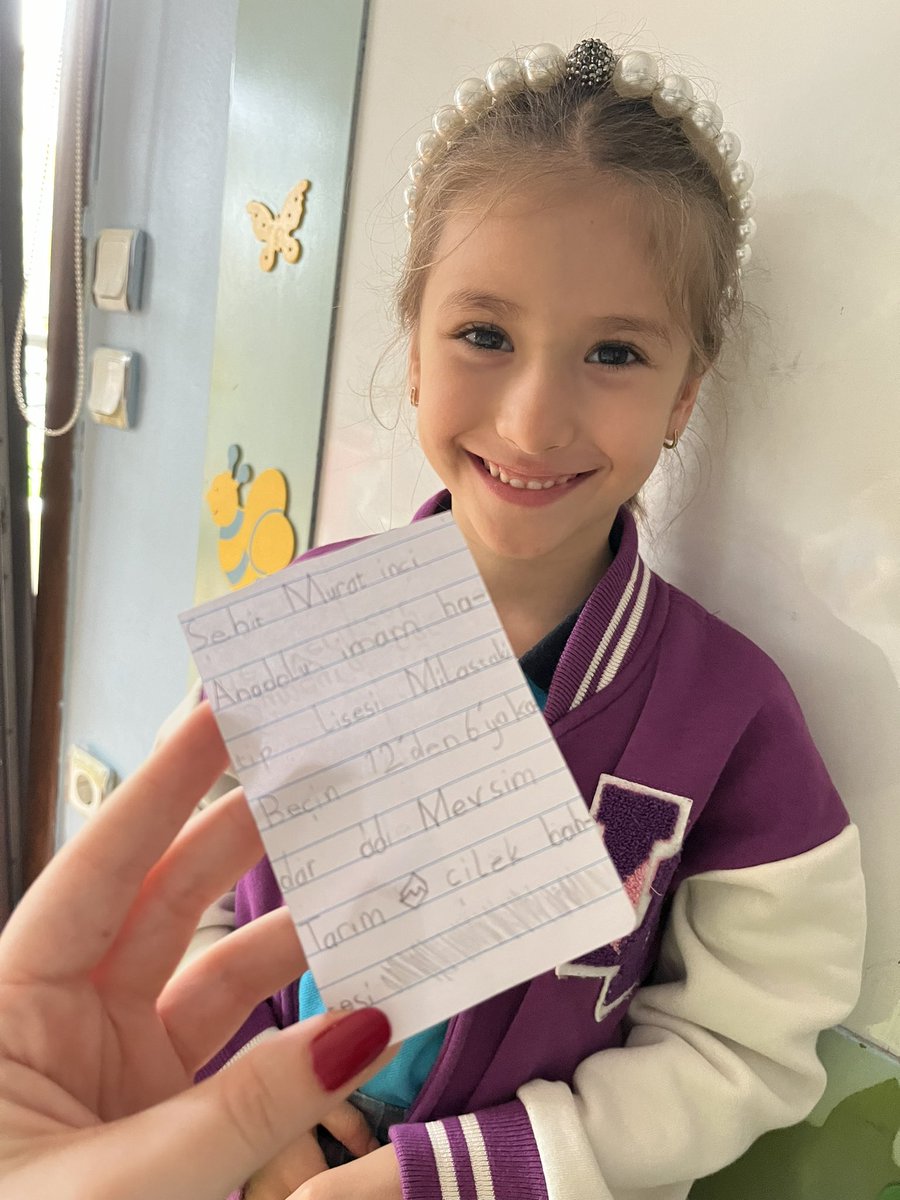 Şehit Murat inci
Anadolu imam ha-
tip Lisesi Milastaki
Beçin 12'den 6'ya ka
dar adı Mevsim
Tarım çilek bah-
sesi